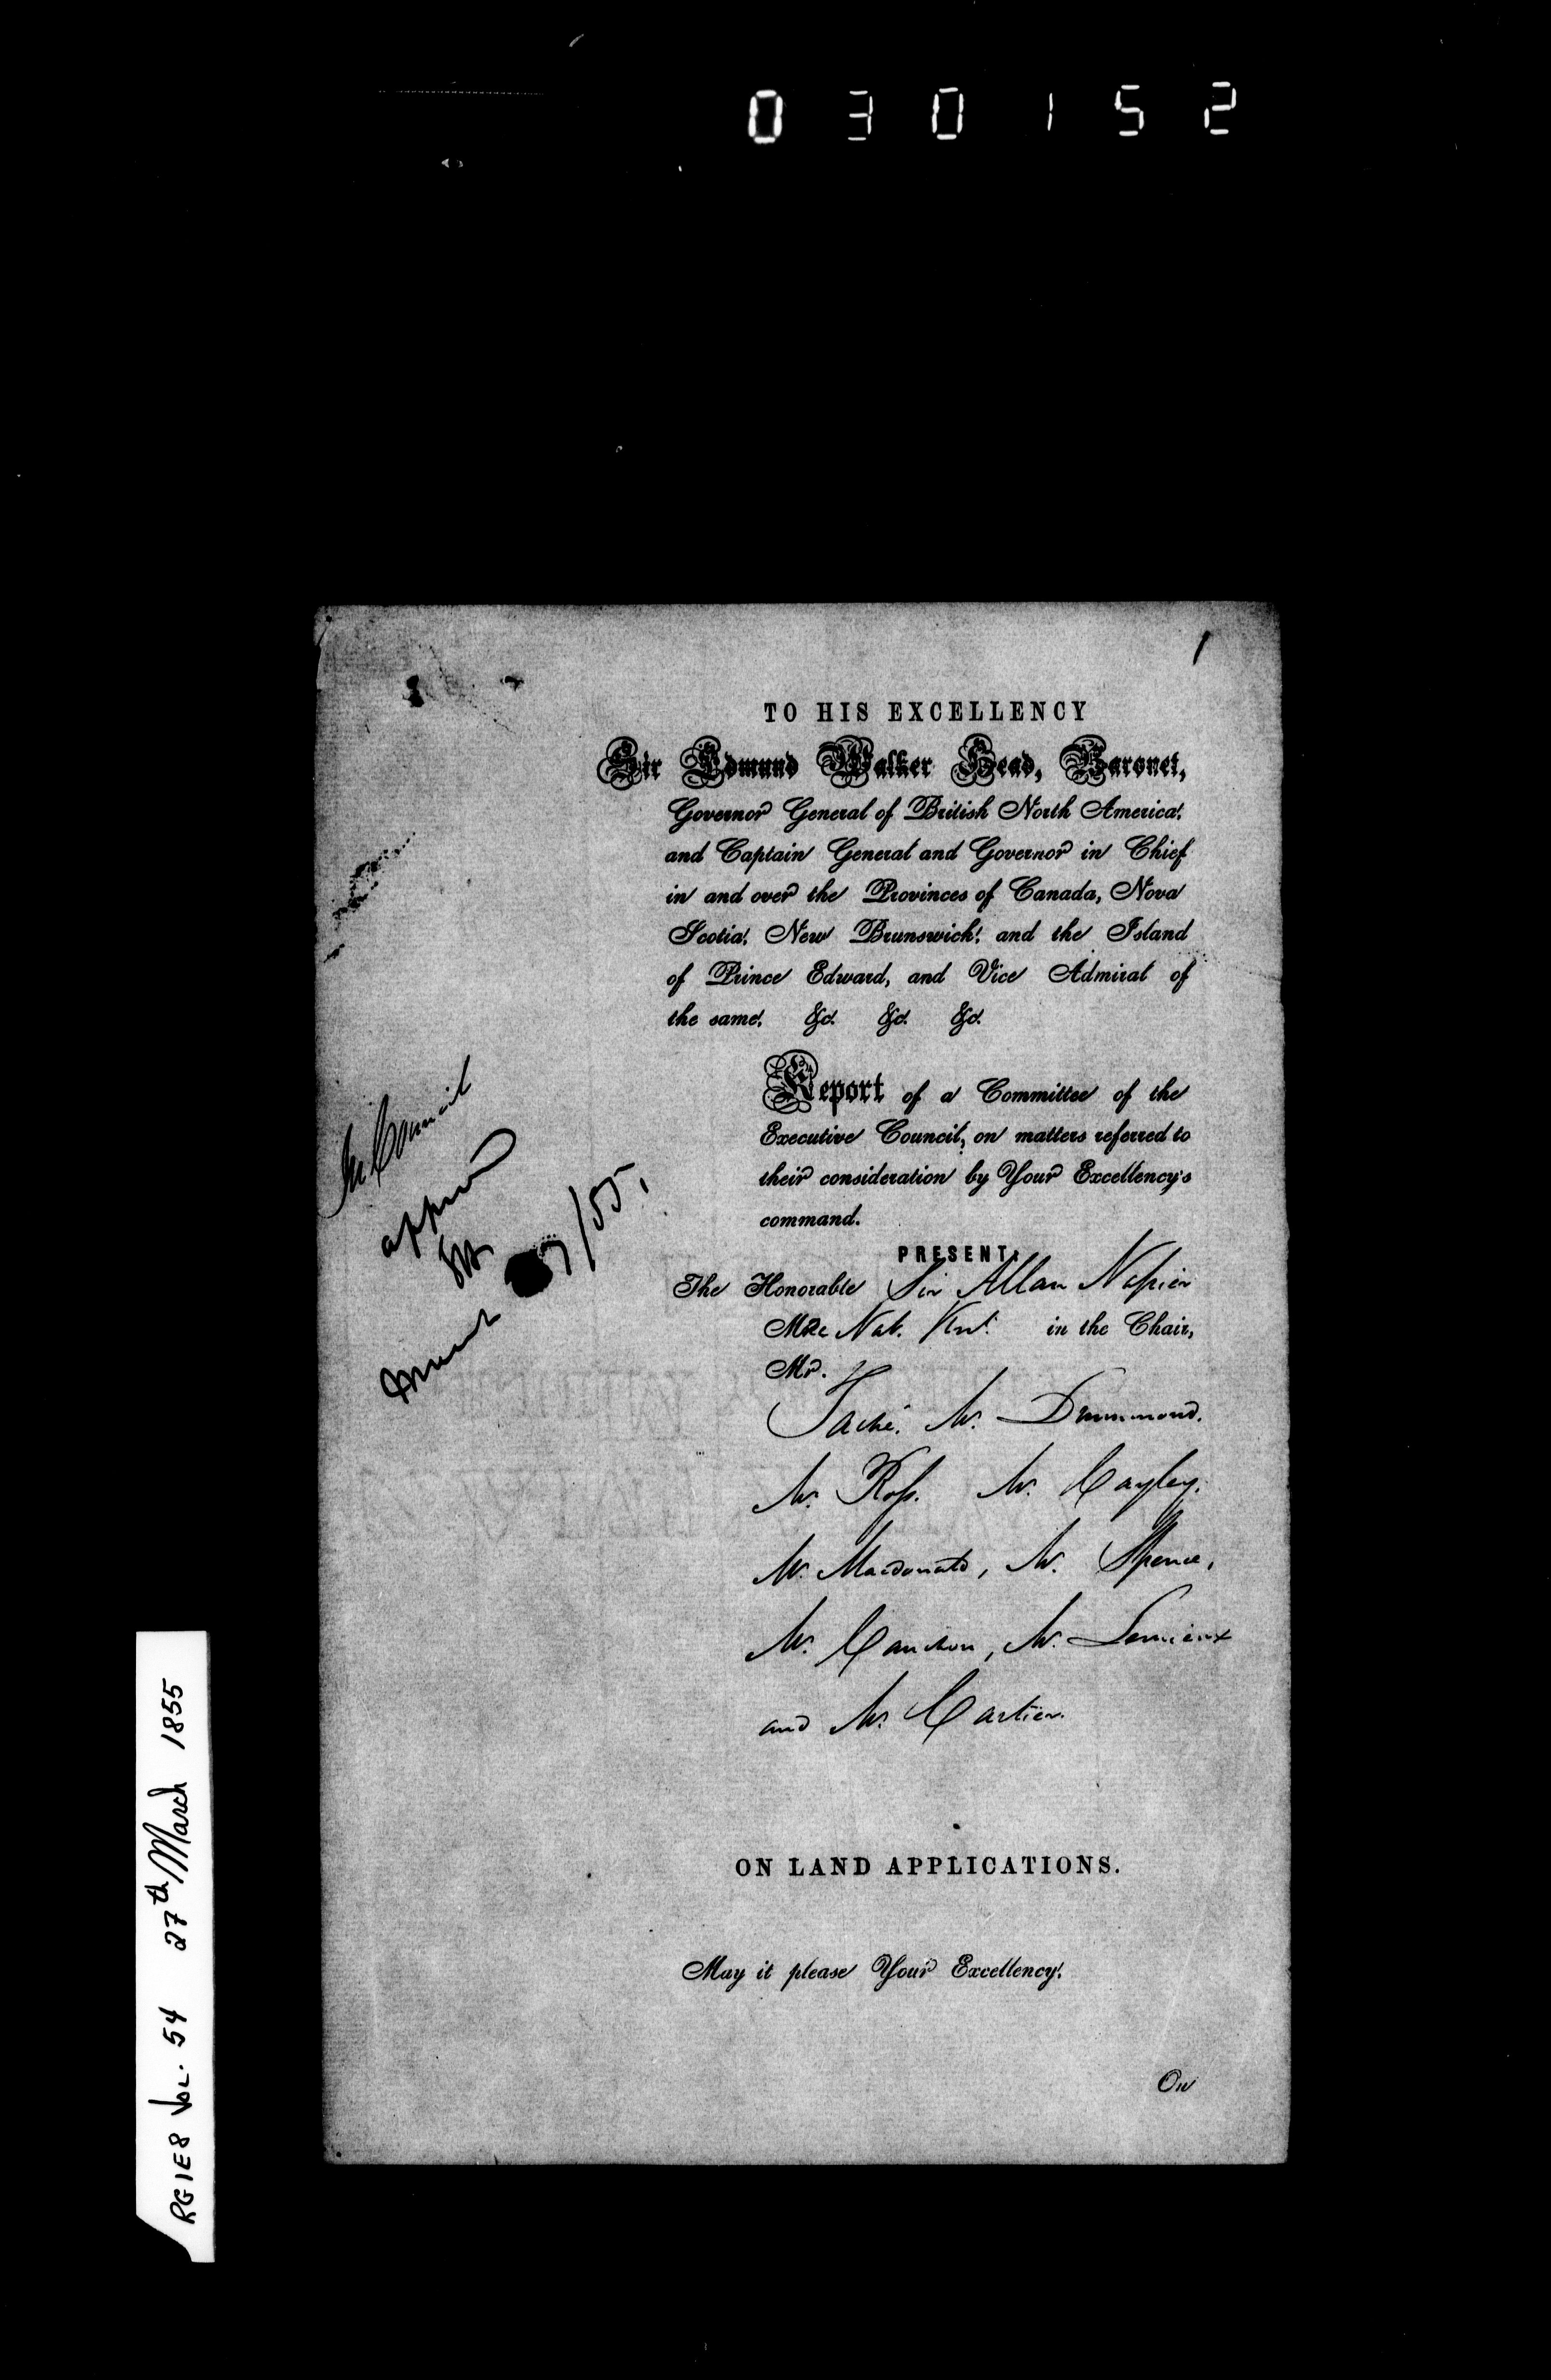 0 3 0 1 5 2
1
TO HIS EXCELLENCY
Sir Edmund Walker Head, Baronet,
Governor General of British North America,
and Captain General and Governor in Chief
in and over the Provinces of Canada, Nova
Scotia, New Brunswick, and the Island
of Prince Edward, and Vice Admiral of
the same, &c. &c. &c.
Report of a Committee of the
Executive Council, on matters referred to
their consideration by Your Excellency's
command.
PRESENT,
The Honorable Sir Allan Napier
Mac Nab. Knt. in the Chair,
Mr.
Taché. Mr. Drummond.
Mr. Ross. Mr. Cayley.
Mr. Macdonald, Mr. Spence,
Mr. Cauchon, Mr. Lemieux
and Mr. Cartier.
In Council
approved
March 7/55.
ON LAND APPLICATIONS.
May it please Your Excellency,
On
RG1E8 Vol. 54 27th March 1855